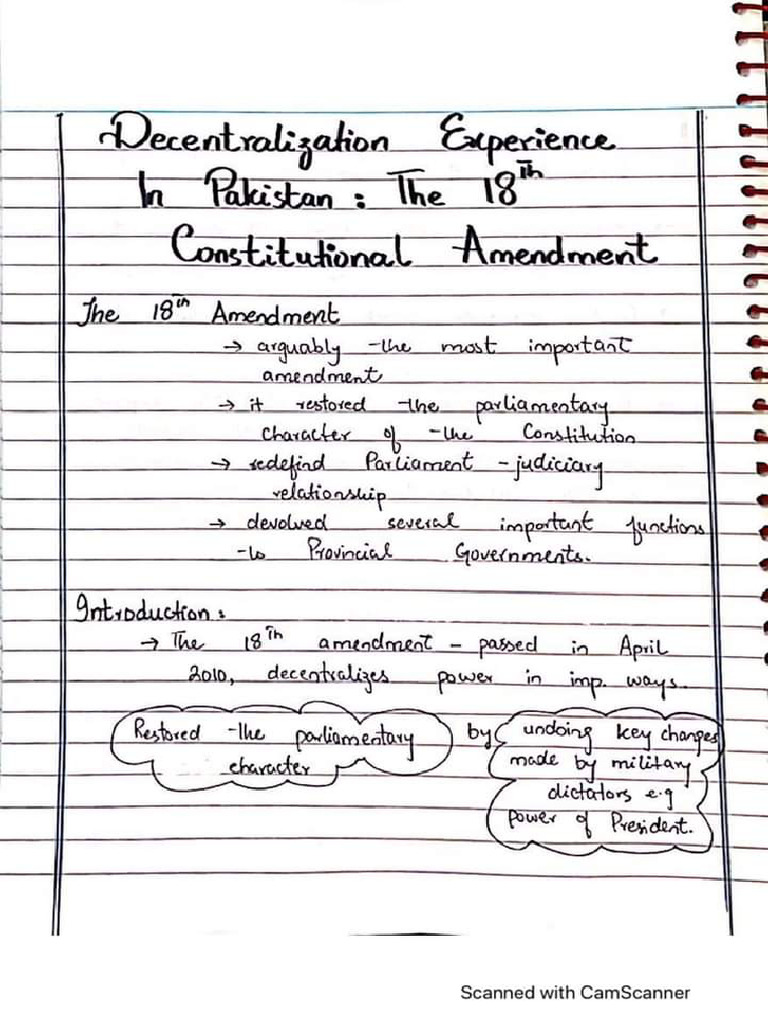 Decentralization Experience
In Pakistan : The 18th
Constitutional Amendment
The 18th Amendment
→ arguably the most important
amendment
→ it restored the parliamentary
character of the Constitution
→ redefind Parliament - judiciary
relationship
→ devolved several important functions
to Provincial Governments.
Introduction :
→ The 18th amendment - passed in April
2010, decentralizes power in imp. ways.
Restored the parliamentary
character
by
undoing key changes
made by military
dictators e.g
power of President.
Scanned with CamScanner